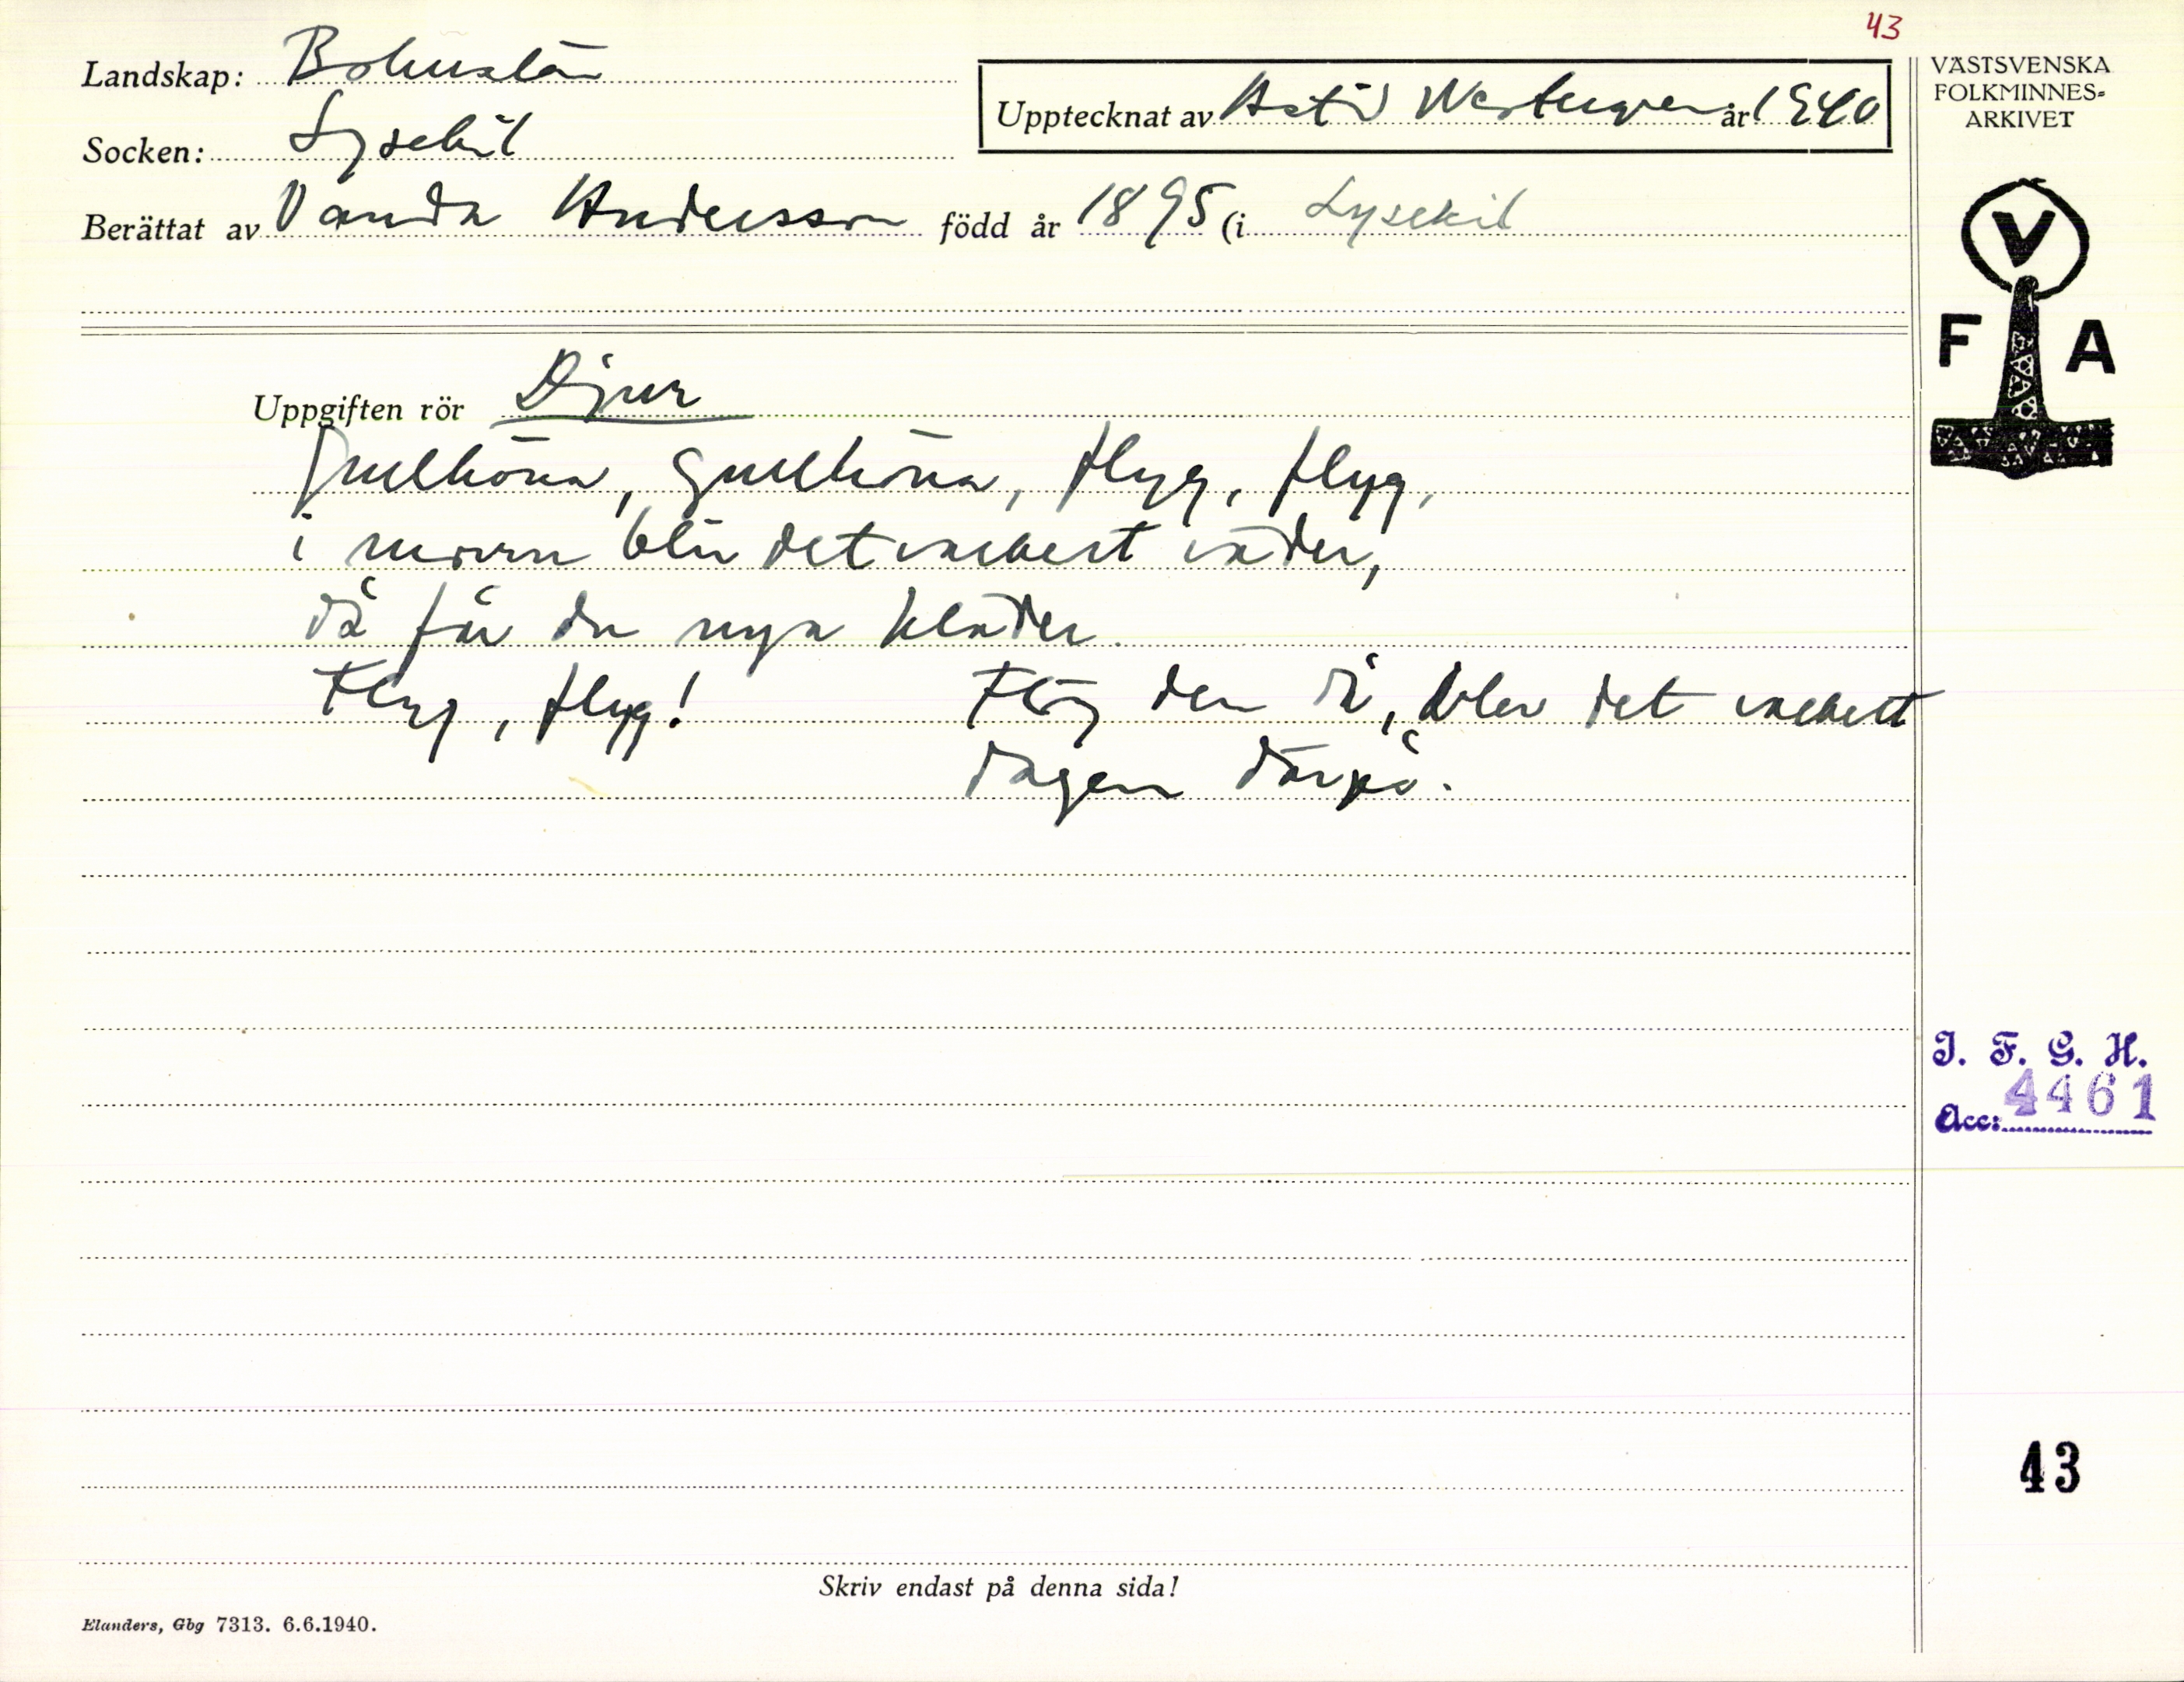 43
Landskap: Bohuslän
Socken: Lysekil
Upptecknat av Astrid år 1940
Berättat av Vanda Andersson född år 1895 (i Lysekil
VÄSTSVENSKA
FOLKMINNES-
ARKIVET
V
F A
Uppgiften rör Djur
Gullhöna, Gullhöna, flyg, flyg,
i morrn blir det vackert väder,
då får du nya kläder.
Flyg, flyg! Flög den då, blev det vackert
dagen därpå.
I. F. G. H.
Acc: 4461
43
Skriv endast på denna sida!
Elanders, Gbg 7313. 6.6.1940.